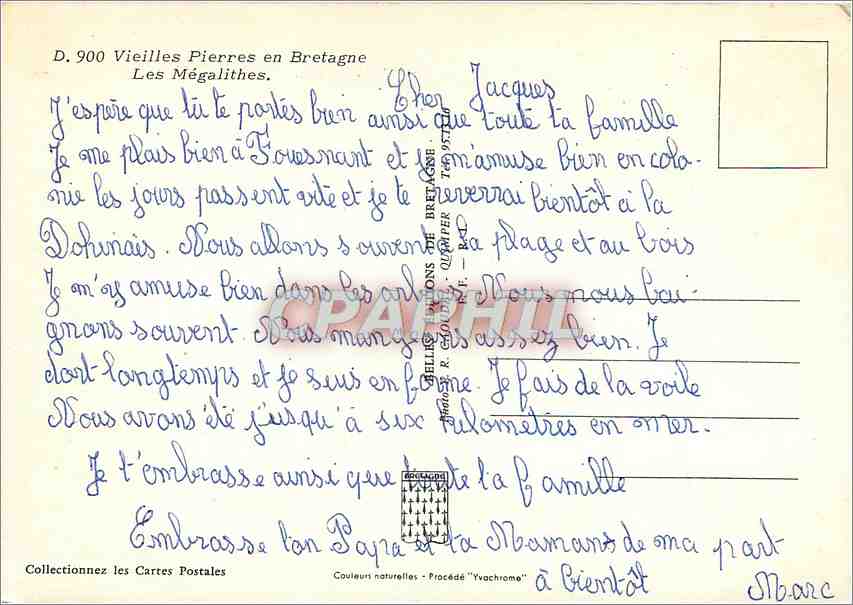 D. 900 Vieilles Pierres en Bretagne
Les Mégalithes.
Cher Jacques
J'espère que tu te portes bien ainsi que toute ta famille
Je me plais bien à Fouesnant et je m'amuse bien en colo-
nie les jours passent vite et je te reverrai bientôt à la
Nous allons souvent à la plage et au bois
Je m'y amuse bien dans les arbres Nous nous bai-
gnons souvent. Nous mangeons assez bien. Je
dort longtemps et je suis en forme. Je fais de la voile
Nous avons été jusqu'à six kilomètres en mer.
Je t'embrasse ainsi que toute ta famille
Embrasse ton Papa et ta Maman de ma part
à bientôt Marc
BELLES ÉDITIONS DE BRETAGNE
QUIMPER
BRETAGNE
CPAPHIL
Collectionnez les Cartes Postales
Couleurs naturelles - Procédé "Yvachrome"